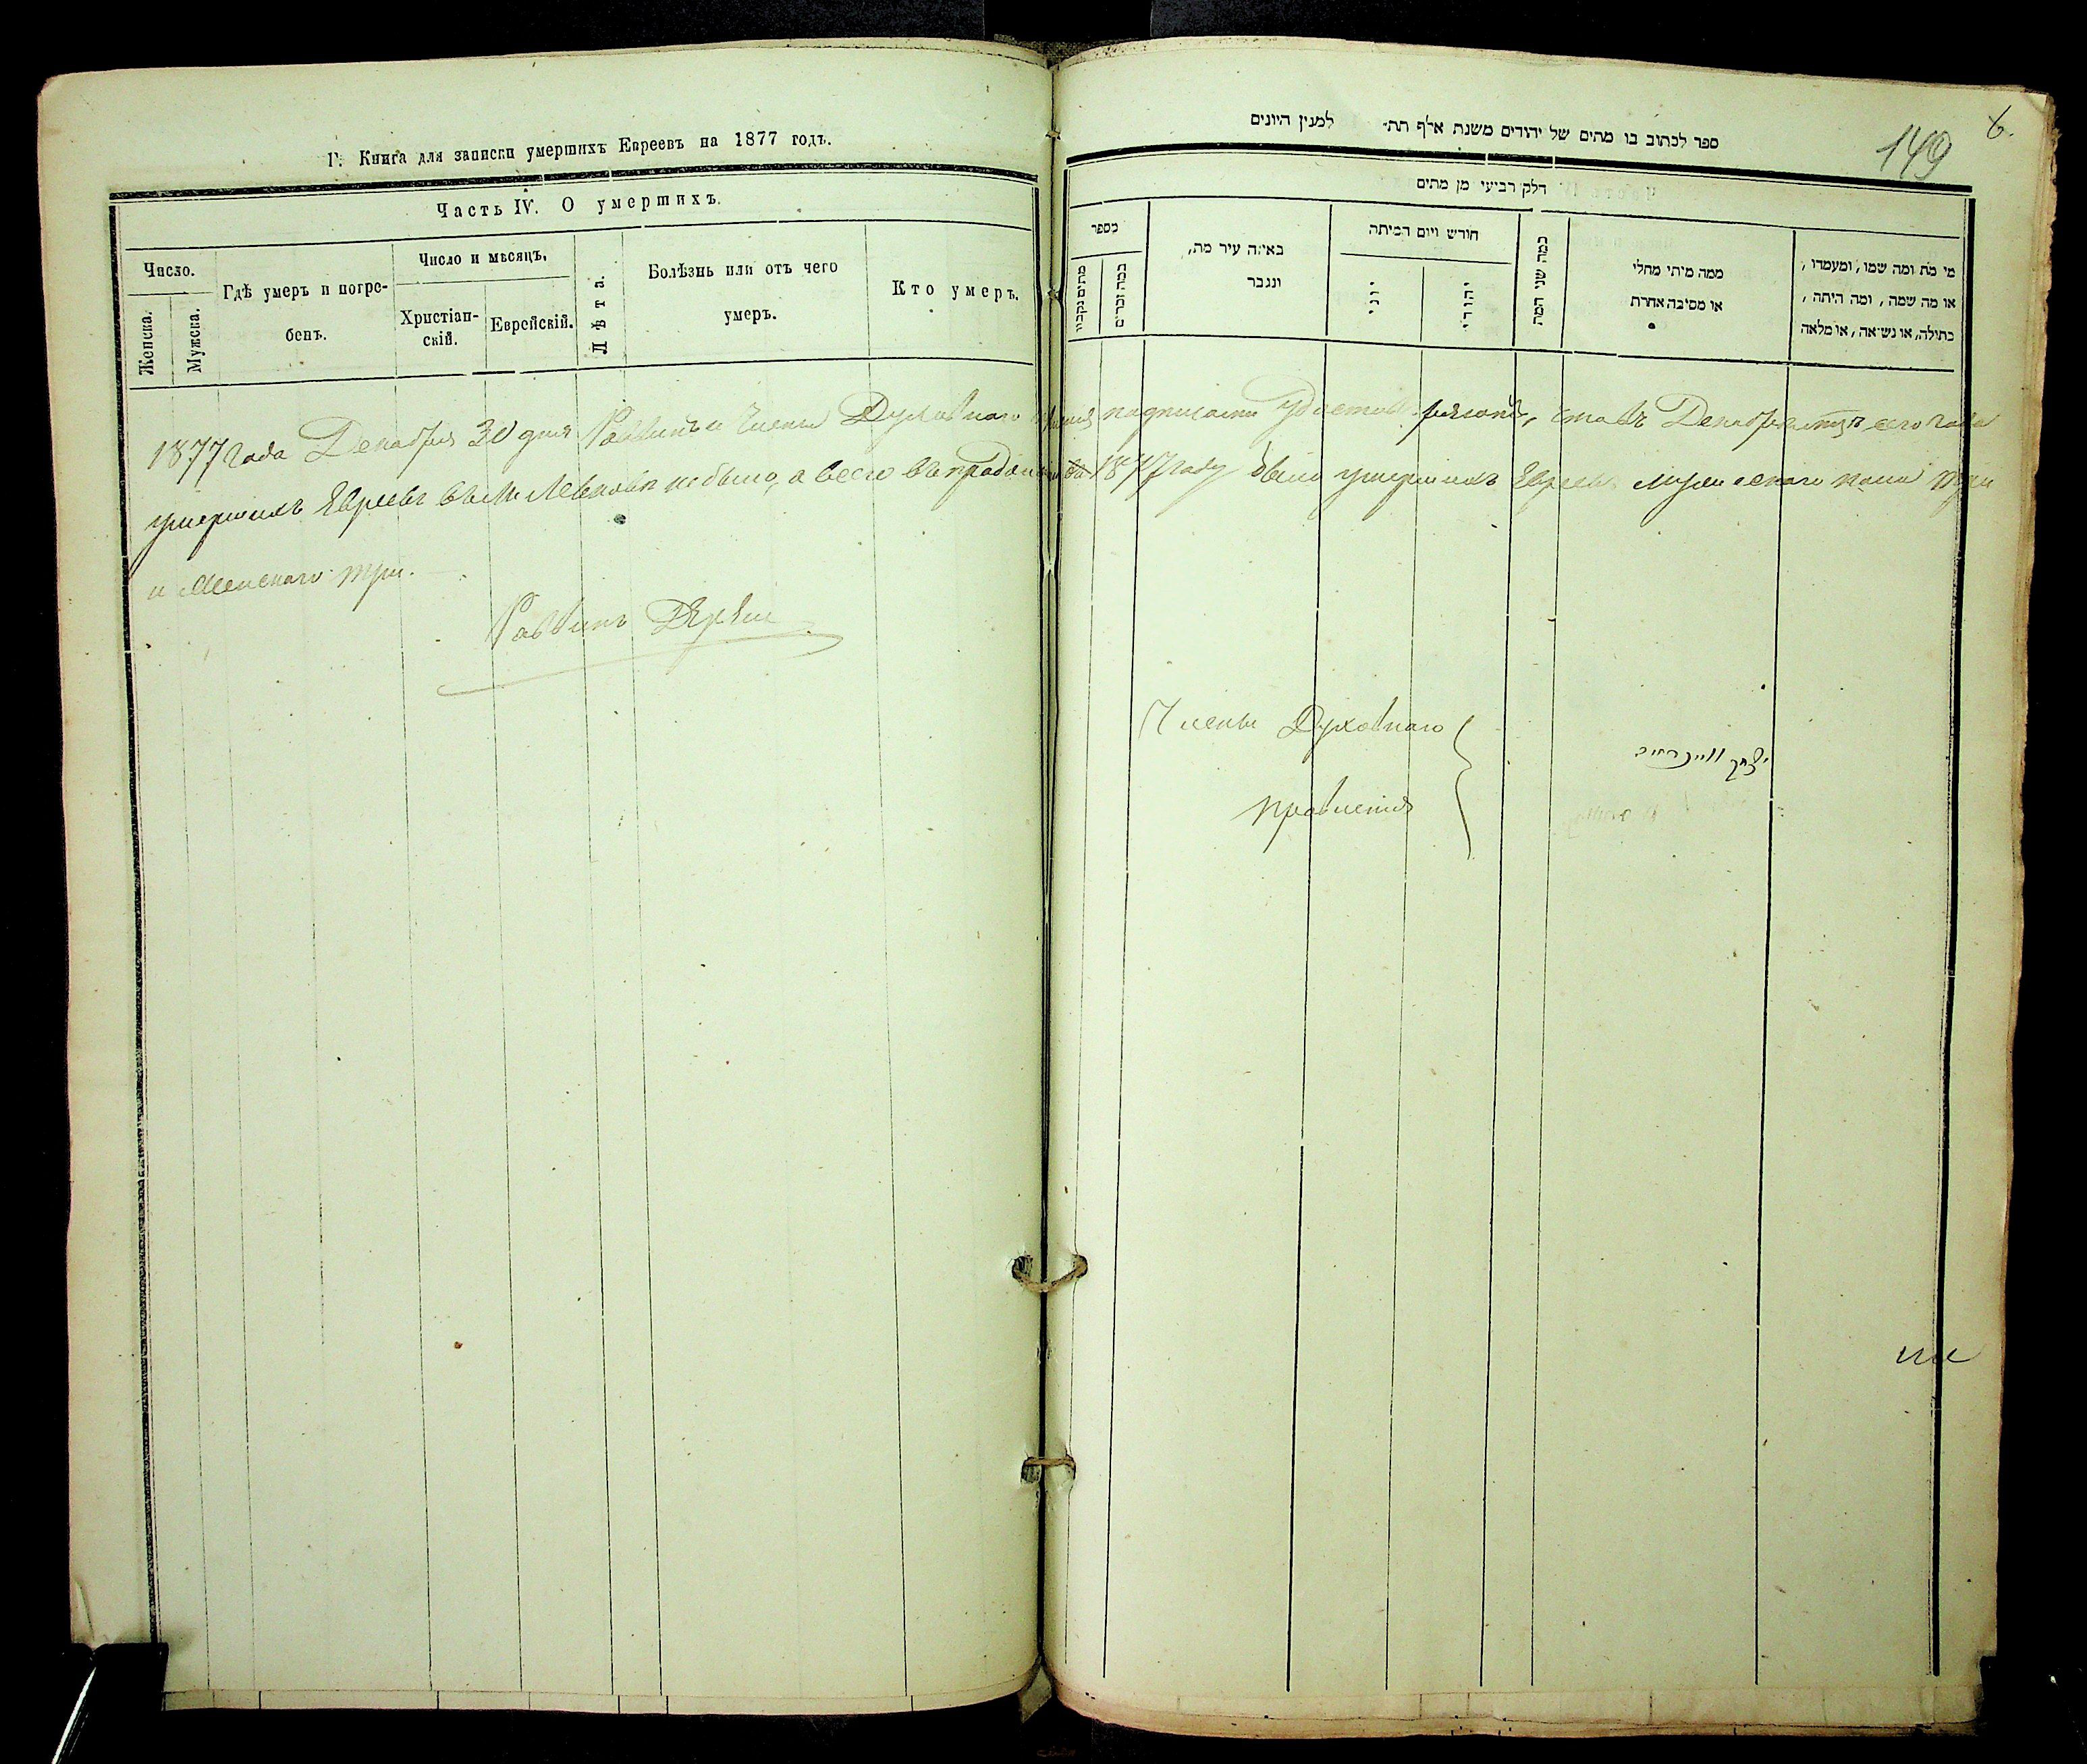 Г. Книга для записки умершихъ Евреевъ на 1877 годъ.
Часть IV. О умершихъ.
Число.
Женска.
Мужска.
Гдѣ умеръ и погре-
бенъ.
Число и мѣсяцъ.
Христіан-
скій.
Еврейскій.
Лѣта.
Болѣзнь или отъ чего
умеръ.
Кто умеръ.
6.
149
ספר לכתוב בו מתים של יהודים משנת אלף תת׳ למנין היונים
חלק רביעי מן מתים
מספר
כמה זכרים
באיזה עיר מת,
ונגבר
חורש ויום המיתה
יוני
יהודי
כמה שני המת
ממה מיתי מחלי
או מסיבה אחרת
מי מת ומה שמו, ומעמדו,
או מה שמה, ומה היתה,
בתילה, או נשאה, או מלאה
1877 года Декабря 30 дня Раввинъ и Члены Духовнаго правленія подписали удостовѣреніе, что въ Декабрѣ м-цѣ сего года
умершихъ Евреевъ въ М. не было, а всего въ 1877 году было умершихъ Евреевъ мужескаго пола три
и Женскаго три.
Раввинъ
Члены Духовнаго
правленія
יצחק